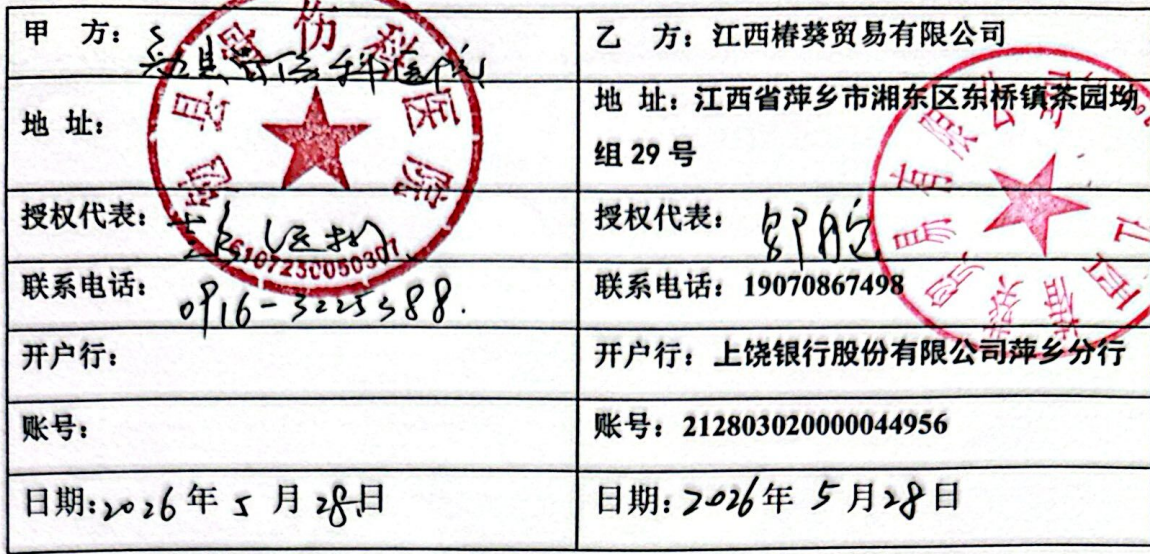 甲 方：
乙 方：江西椿葵贸易有限公司
地 址：
地 址：江西省萍乡市湘东区东桥镇茶园坳
组 29 号
授权代表：
授权代表：
联系电话：0916-3225388.
联系电话：19070867498
开户行：
开户行：上饶银行股份有限公司萍乡分行
账号：
账号：212803020000044956
日期:2026年 5 月 28日
日期:2026年 5 月 28 日
骨伤科医院